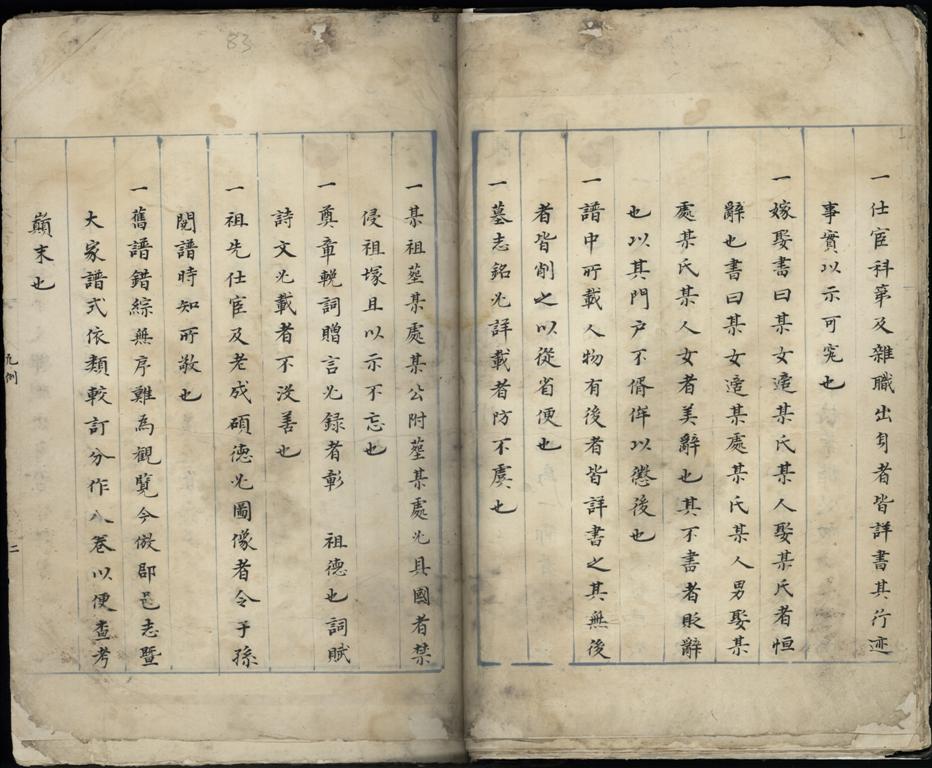 一仕宦科第及雜職出身者皆詳書其行迹
事實以示可究也
一嫁娶書曰某女適某氏某人娶某氏者恒
辭也書曰某女適某處某氏某人男娶某
處某氏某人女者美辭也其不書者貶辭
也以其門戶不偦侔以懲後也
一譜中所載人物有後者皆詳書之其無後
者皆削之以從省便也
一墓志銘必詳載者防不虞也
一某祖塟某處某公附塟某處必具圖者禁
侵祖塚且以示不忘也
一奠章輓詞贈言必録者彰 祖德也詞賦
詩文必載者不没善也
一祖先仕宦及老成碩德必圖像者令子孫
閱譜時知所敬也
一舊譜錯綜無序難為觀覽今倣郡邑志暨
大家譜式依類較訂分作八卷以便查考
巔末也
凡例
二
83